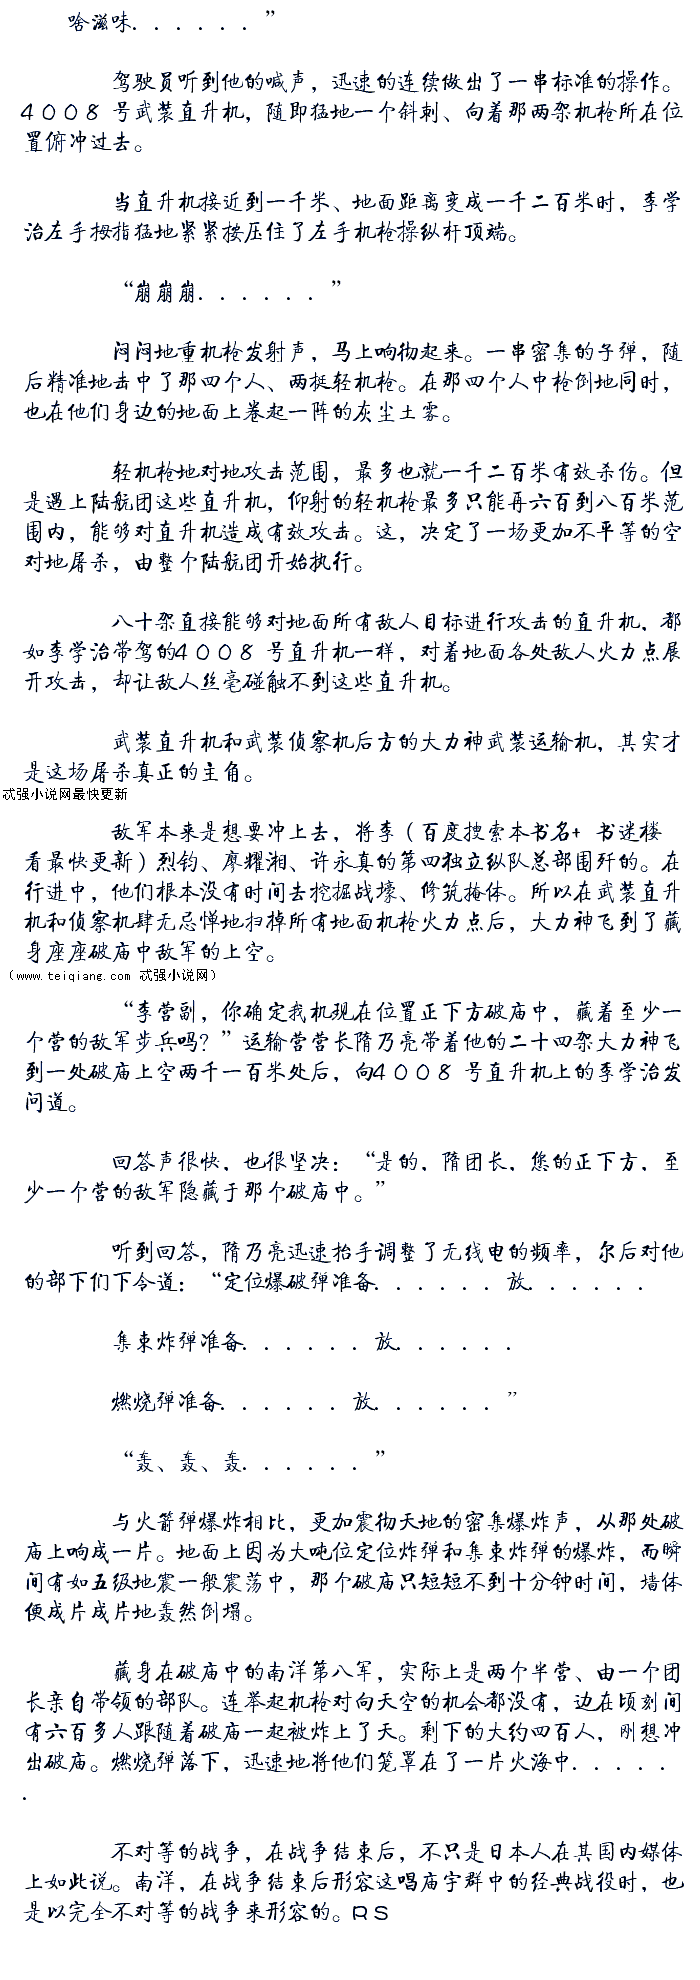 啥滋味．．．．．．”
驾驶员听到他的喊声，迅速的连续做出了一串标准的操作。
４００８号武装直升机，随即猛地一个斜刺、向着那两架机枪所在位
置俯冲过去。
当直升机接近到一千米、地面距离变成一千二百米时，李学
治左手拇指猛地紧紧按压住了左手机枪操纵杆顶端。
“崩崩崩．．．．．．”
闷闷地重机枪发射声，马上响彻起来。一串密集的子弹，随
后精准地击中了那四个人、两挺轻机枪。在那四个人中枪倒地同时，
也在他们身边的地面上卷起一阵的灰尘土雾。
轻机枪地对地攻击范围，最多也就一千二百米有效杀伤。但
是遇上陆航团这些直升机，仰射的轻机枪最多只能再六百到八百米范
围内，能够对直升机造成有效攻击。这，决定了一场更加不平等的空
对地屠杀，由整个陆航团开始执行。
八十架直接能够对地面所有敌人目标进行攻击的直升机，都
如李学治带驾的４００８号直升机一样，对着地面各处敌人火力点展
开攻击，却让敌人丝毫碰触不到这些直升机。
武装直升机和武装侦察机后方的大力神武装运输机，其实才
是这场屠杀真正的主角。
忒强小说网最快更新
敌军本来是想要冲上去，将李（百度搜索本书名+ 书迷楼
看最快更新）烈钧、廖耀湘、许永真的第四独立纵队总部围歼的。在
行进中，他们根本没有时间去挖掘战壕、修筑掩体。所以在武装直升
机和侦察机肆无忌惮地扫掉所有地面机枪火力点后，大力神飞到了藏
身座座破庙中敌军的上空。
（www.teiqiang.com 忒强小说网）
“李营副，你确定我机现在位置正下方破庙中，藏着至少一
个营的敌军步兵吗？”运输营营长隋乃亮带着他的二十四架大力神飞
到一处破庙上空两千一百米处后，向４００８号直升机上的李学治发
问道。
回答声很快，也很坚决：“是的，隋团长，您的正下方，至
少一个营的敌军隐藏于那个破庙中。”
听到回答，隋乃亮迅速抬手调整了无线电的频率，尔后对他
的部下们下令道：“定位爆破弹准备．．．．．．放．．．．．．
集束炸弹准备．．．．．．放．．．．．．
燃烧弹准备．．．．．．放．．．．．．”
“轰、轰、轰．．．．．．”
与火箭弹爆炸相比，更加震彻天地的密集爆炸声，从那处破
庙上响成一片。地面上因为大吨位定位炸弹和集束炸弹的爆炸，而瞬
间有如五级地震一般震荡中，那个破庙只短短不到十分钟时间，墙体
便成片成片地轰然倒塌。
藏身在破庙中的南洋第八军，实际上是两个半营、由一个团
长亲自带领的部队。连举起机枪对向天空的机会都没有，边在顷刻间
有六百多人跟随着破庙一起被炸上了天。剩下的大约四百人，刚想冲
出破庙。燃烧弹落下，迅速地将他们笼罩在了一片火海中．．．．．
．
不对等的战争，在战争结束后，不只是日本人在其国内媒体
上如此说。南洋，在战争结束后形容这唱庙宇群中的经典战役时，也
是以完全不对等的战争来形容的。ＲＳ